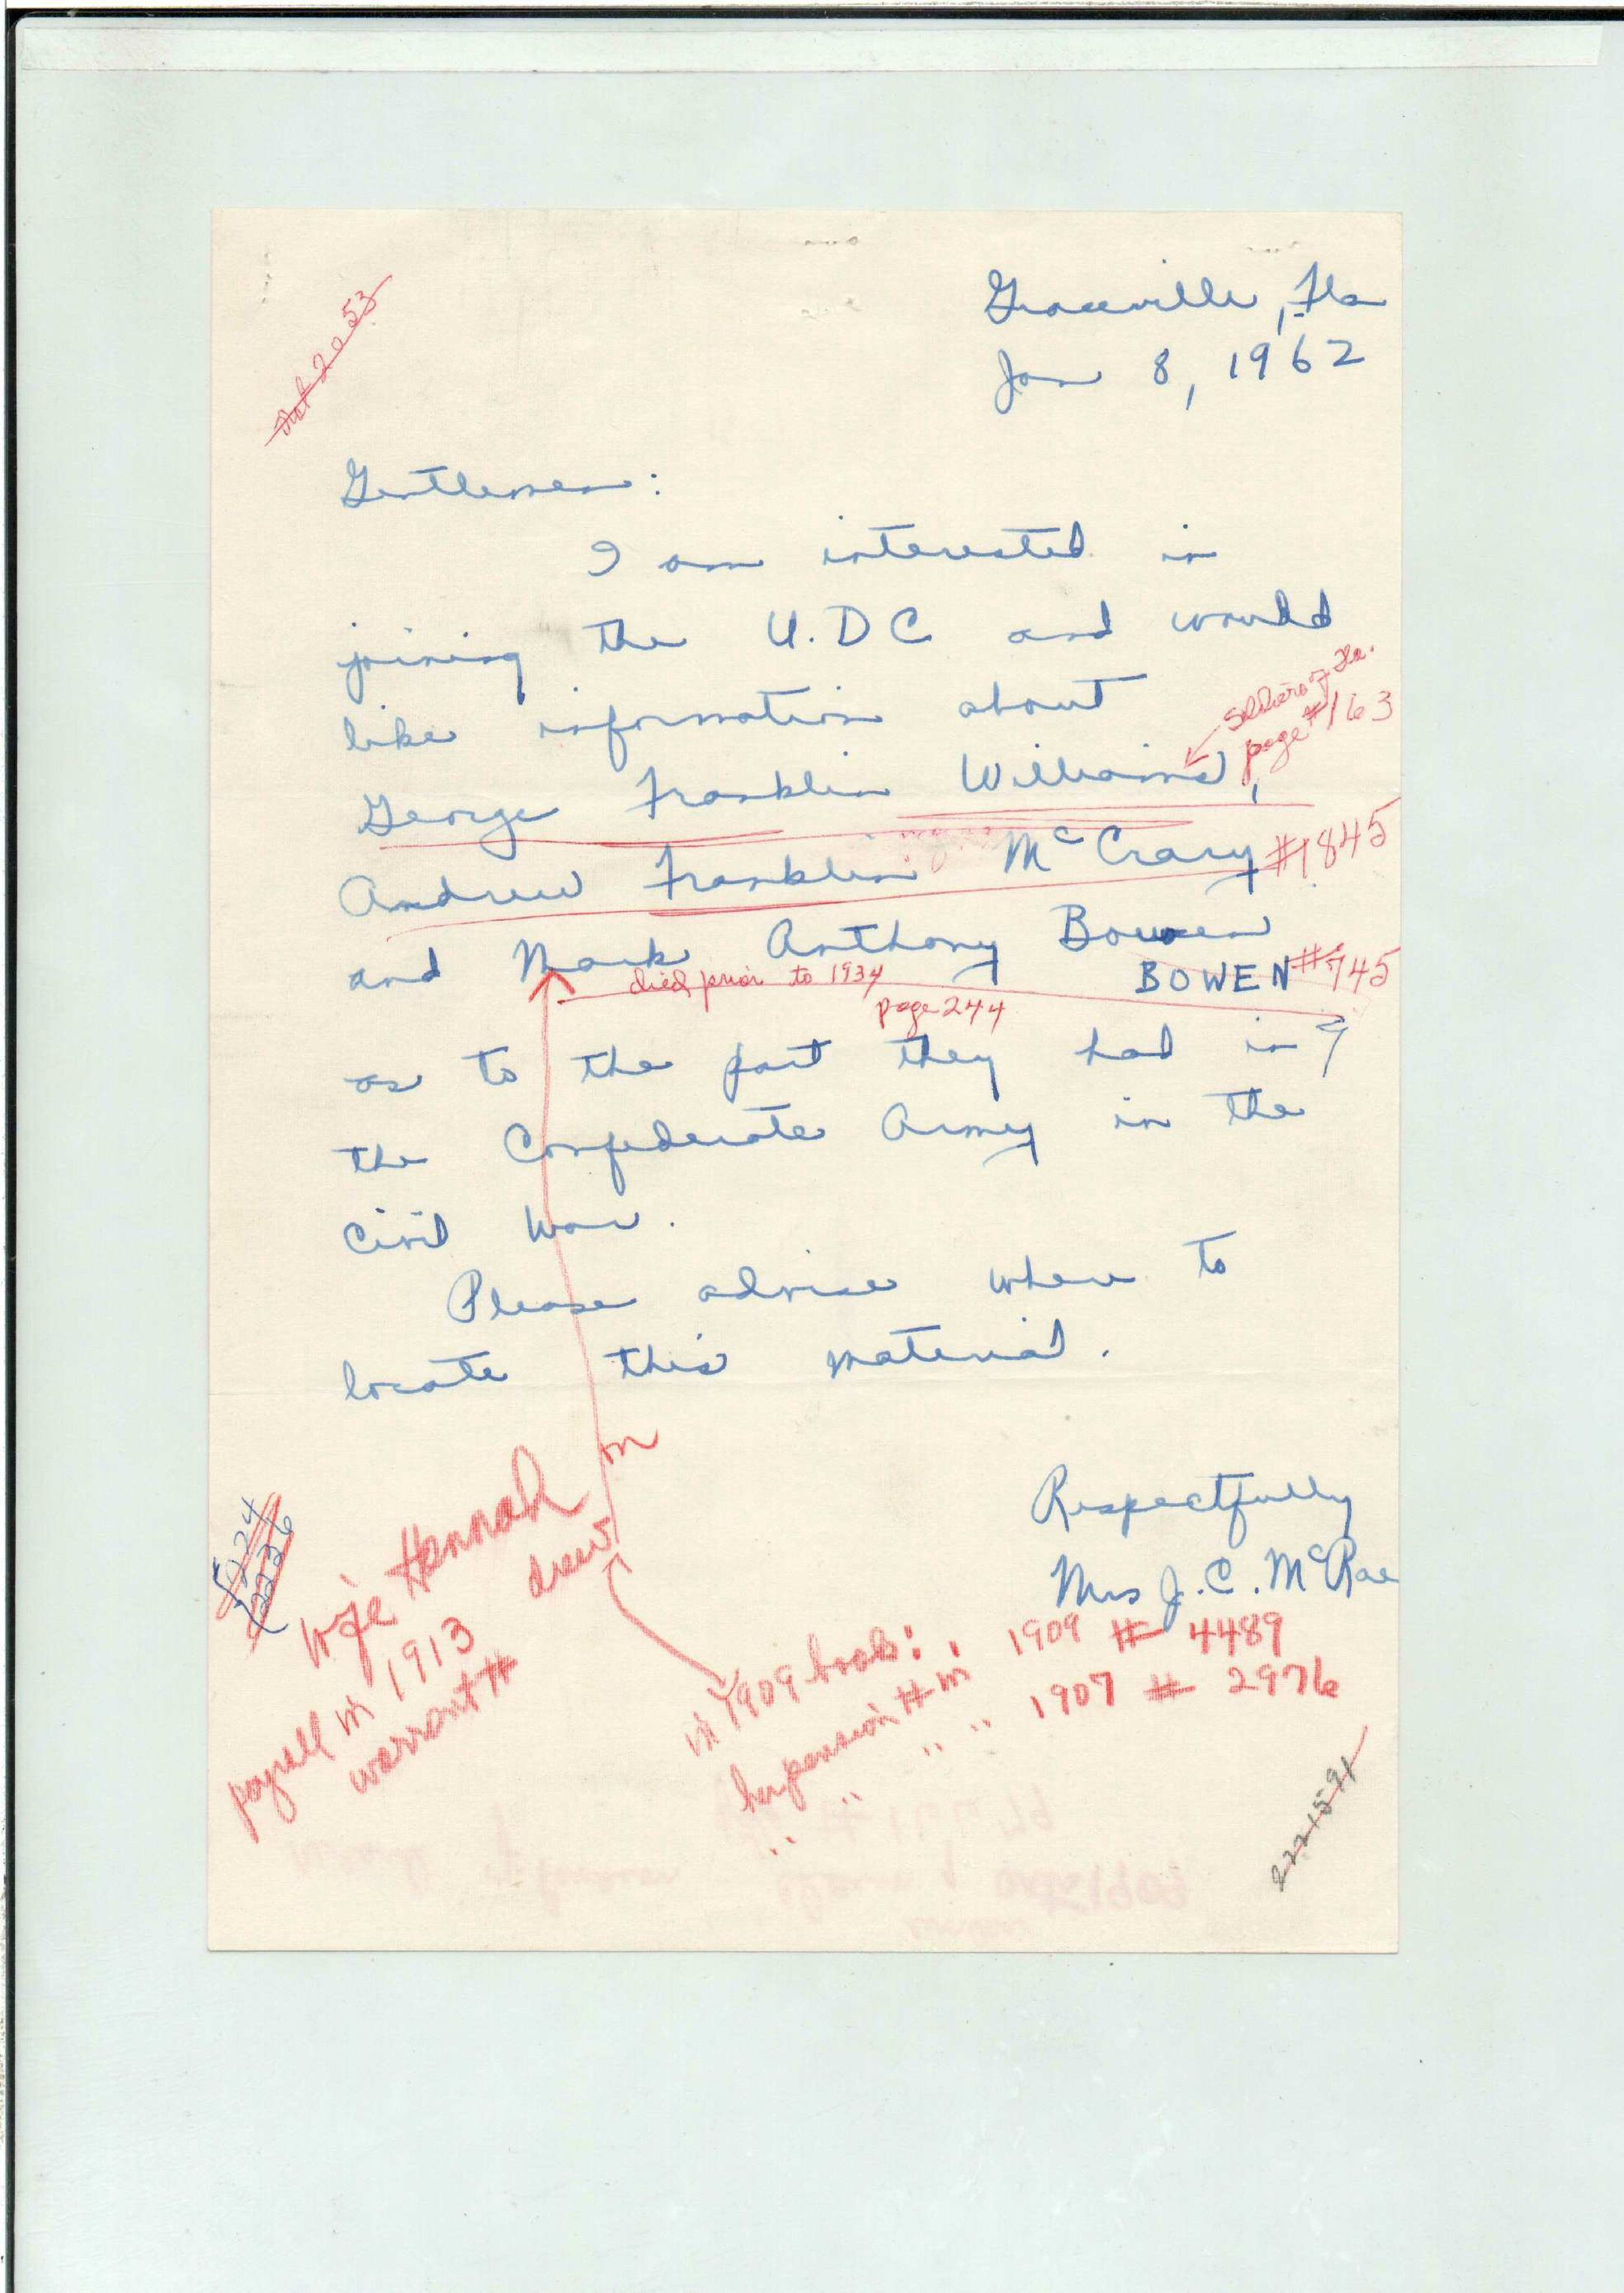 Graceville, Fla
Jan 8, 1962
not 2053
Gentlemen:
I am interested in
joining the U.D.C and would
like information about
Soldiers of Fla.
page #163
George Franklin Williams,
Andrew Franklin McCrary #1845
and Mark Anthony Bowen
died prior to 1934 BOWEN #745
page 244
as to the part they had in
the Confederate Army in the
Civil War.
Please advise where to
locate this material.
Respectfully
Mrs J. C. McRae
5224
2226
wife Hannah M
drew
payroll in 1913
warrant #
in 1909 book:
her pension # in 1909 # 4489
" " " " 1907 # 2976
2221591